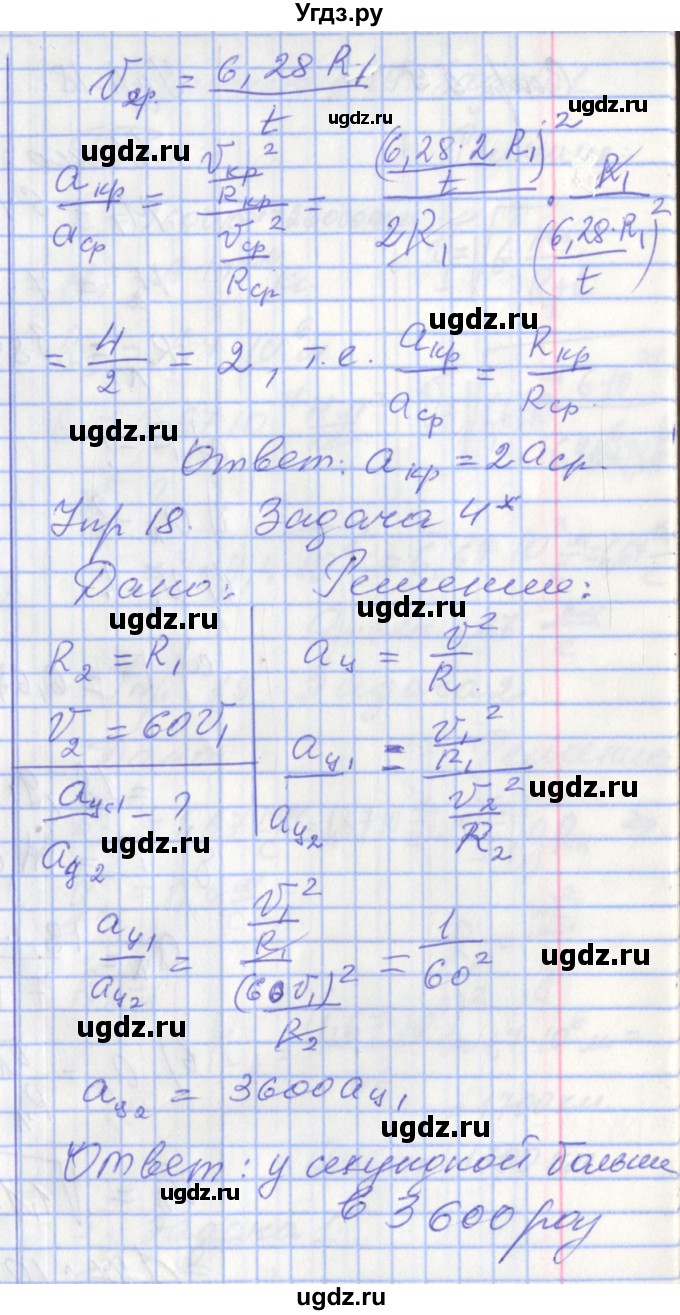 Угдз.ру
v₂р. = 6,28 R₁ / t
ugdz.ru
ugdz.ru
aкр / aср = (vкр² / Rкр) / (vср² / Rср) = (6,28·2 R₁ / t)² / 2R₁ · R₁ / (6,28·R₁ / t)²
ugdz.ru
ugdz.ru
= 4/2 = 2, т.е. aкр / aср = Rкр / Rср.
ugdz.ru
Ответ: aкр = 2aср
Упр 18. Задача 4*
Дано: Решение:
ugdz.ru
ugdz.ru
R₂ = R₁
aц = v² / R.
v₂ = 60v₁
aц₁ / aц₂ = (v₁² / R₁) / (v₂² / R₂)
ugdz.ru
aц₁ / aц₂ - ?
ugdz.ru
aц₁ / aц₂ = (v₁² / R₁) / ((60v₁)² / R₂) = 1 / 60²
ugdz.ru
ugdz.ru
aц₂ = 3600aц₁
ugdz.ru
Ответ: у секундной больше
ugdz.ru
в 3600 раз
ugdz.ru
ugdz.ru